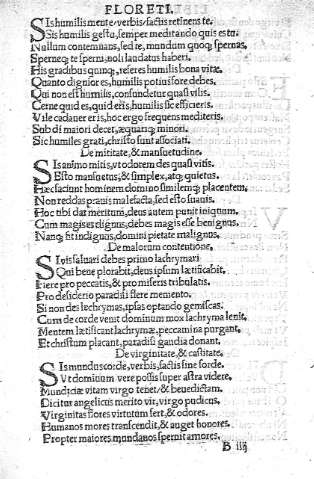 FLORETI.
SIs humilis mente, verbis, factis retinens te.
Sis humilis gestu, semper meditando quis es tu.
Nullum contemnans, sed te, mundum quoq; spernas,
Sperneq; te sperni, noli laudatus haberi.
His gradibus quinq;, referes humilis bona vitæ.
Quanto dignior es, humilis potius fore debes.
Qui non est humilis, confundetur quasi vilis.
Cerne quid es, quid eris, humilis sic efficieris.
Vile cadauer eris, hoc ergo frequens mediteris.
Subdi maiori decet, æquanq; minori.
Sic humiles grati, christo sunt associati.
De mititate, & mansuetudine.
SIs animo mitis, vt odorem des quasi vitis.
Esto mansuetus, & simplex, atq; quietus.
Hæc faciunt hominem domino similemq; placentem,
Non reddas prauis malefacta, sed esto suauis.
Hoc tibi dat meritum, deus autem punit iniquum.
Cum magis es dignus, debes magis esse benignus,
Nanq; & indignus, domini pietate malignos.
De malorum contentione.
SI vis saluari debes primo lachrymari
Qui bene plorabit, deus ipsum lætificabit.
Flere pro peccatis, & pro miseris tribulatis.
Pro desiderio paradisi flere memento.
Si non des lachrymas, ipsas optando gemiscas.
Cum de corde venit dominum mox lachryma lenit,
Mentem lætificant lachrymæ, peccamina purgant,
Et christum placant, paradisi gaudia donant.
De virginitate, & castitate.
SIs mundus corde, verbis, factis sine sorde.
Vt dominum vere possis super astra videre.
Munditiæ vitam virgo tenet, & benedictam.
Dicitur angelicus merito vir, virgo pudicus.
Virginitas flores virtutum fert, & odores.
Humanos mores transcendit, & auget honores.
Propter maiores mundanos spernit amores.
B iiij